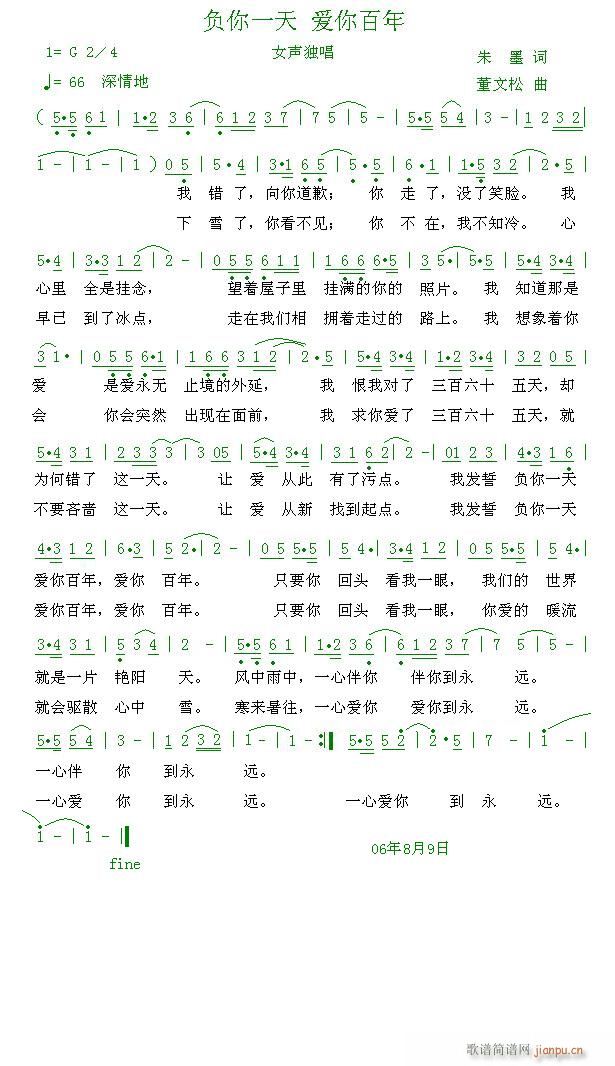 负你一天 爱你百年
1= G 2／4
女声独唱
朱 墨 词
♩= 66 深情地
董文松 曲
( 5•5 6 1 | 1•2 3 6 | 6 1 2 3 7 | 7 5 | 5 - | 5•5 5 4 | 3 - | 1 2 3 2 |
1 - | 1 - | 1 ) 0 5 | 5•4 | 3•1 6 5 | 5•5 | 6•1 | 1•5 3 2 | 2•5 |
我 错 了，向你道歉； 你 走 了，没了笑脸。 我
下 雪 了，你看不见； 你 不 在，我不知冷。 心
5•4 | 3•3 1 2 | 2 - | 0 5 5 6 1 1 | 1 6 6 1 2 | 6•5 | 3•5 | 5•4 3•4 |
心里 全是挂念， 望着屋子里 挂满的你的 照片。 我 知道那是
早已 到了冰点， 走在我们相 拥着走过的 路上。 我 想象着你
3 1• | 0 5 5 6•1 | 1 6 6 3 1 2 | 2• 5 | 5•4 3•4 | 1•2 3•4 | 3 2 0 5 |
爱 是爱永无 止境的外延， 我 恨我对了 三百六十 五天，却
会 你会突然 出现在面前， 我 求你爱了 三百六十 五天，就
5•4 3 1 | 2 3 3 3 | 3 05 | 5•4 3•4 | 3 1 6 2 | 2 - | 01 2 3 | 4•3 1 6 |
为何错了 这一天。 让 爱 从此 有了污点。 我发誓 负你一天
不要吝啬 这一天。 让 爱 从新 找到起点。 我发誓 负你一天
4•3 1 2 | 6•3 | 5 2• | 2 - | 0 5 5•5 | 5 3•5 | 4•3 1 2 | 0 5 5•5 | 5 4• |
爱你百年，爱你 百年。 只要你 回头 看我一眼， 我们的 世界
爱你百年，爱你 百年。 只要你 回头 看我一眼， 你爱的 暖流
3•4 3 1 | 5 3 4 | 2 - | 5•5 6 1 | 1•2 3 6 | 6 1 2 3 7 | 7 5 | 5 - |
就是一片 艳阳 天。 风中雨中，一心伴你 伴你到永 远。
就会驱散 心中 雪。 寒来暑往，一心爱你 爱你到永 远。
5•5 5 4 | 3 - | 1 2 3 2 | 1 - | 1 - :‖ 5•5 5 2 | 2• 5 | 7 - | 1 - |
一心伴 你 到永 远。
一心爱 你 到永 远。 一心爱你 到 永 远。
1 - | 1 - ‖
06年8月9日
fine
歌谱简谱网
jianpu.cn